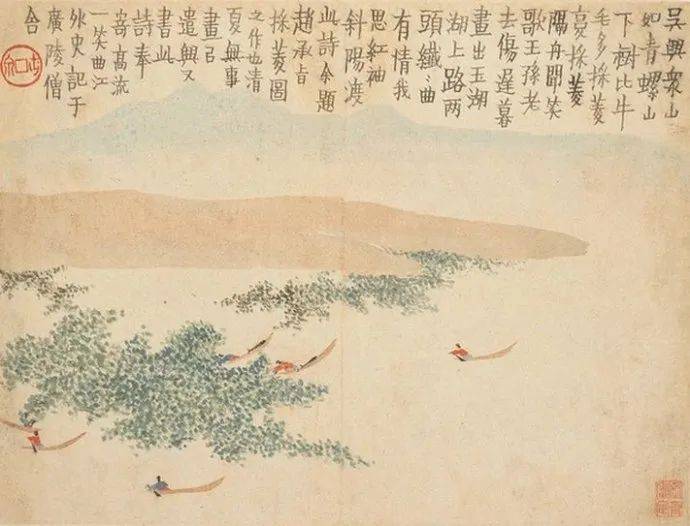 吳興衆山
如青螺山
下樹比牛
毛多採菱
復採菱
隔舟聞笑
歌王孫老
去傷遲暮
畫出玉湖
湖上路兩
頭纖纖曲
有情我
思紅袖
斜陽渡
此詩余題
趙承旨
採菱圖
之作也清
夏無事
畫㠯
遣興又
書此
詩奉
寄高流
一笑曲江
外史記于
廣陵僧
舍